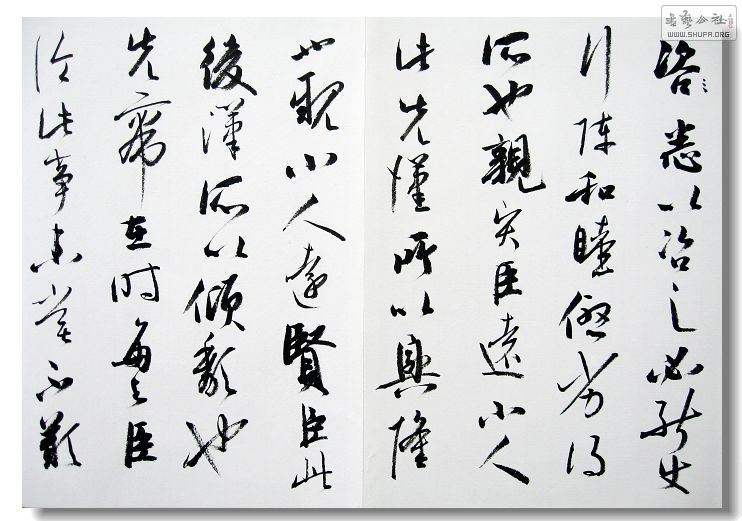 咨悉以咨之必能使
行陣和睦優劣得
所也親賢臣遠小人
此先漢所以興隆
也親小人遠賢臣此
後漢所以傾頹也
先帝在时每與臣
論此事未嘗不歎
书艺公社
WWW.SHUFA.ORG